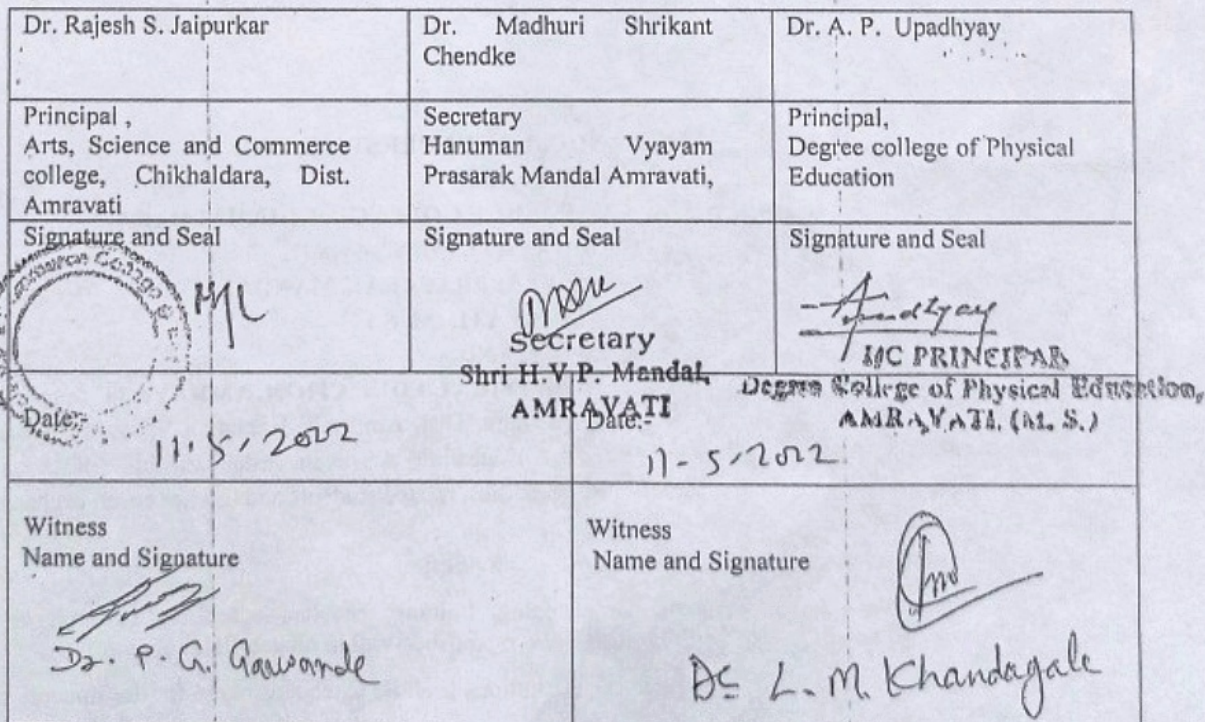 Dr. Rajesh S. Jaipurkar
Dr. Madhuri Shrikant
Chendke
Dr. A. P. Upadhyay
Principal ,
Arts, Science and Commerce
college, Chikhaldara, Dist.
Amravati
Secretary
Hanuman Vyayam
Prasarak Mandal Amravati,
Principal,
Degree college of Physical
Education
Signature and Seal
Signature and Seal
Signature and Seal
Secretary
Shri H.V.P. Mandal,
AMRAVATI
I/C PRINCIPAL
Degree College of Physical Education,
AMRAVATI. (M. S.)
Date:-
11-5-2022
Date:-
11-5-2022
Witness
Name and Signature
Dr. P. G. Gawande
Witness
Name and Signature
L. M. Khandagale